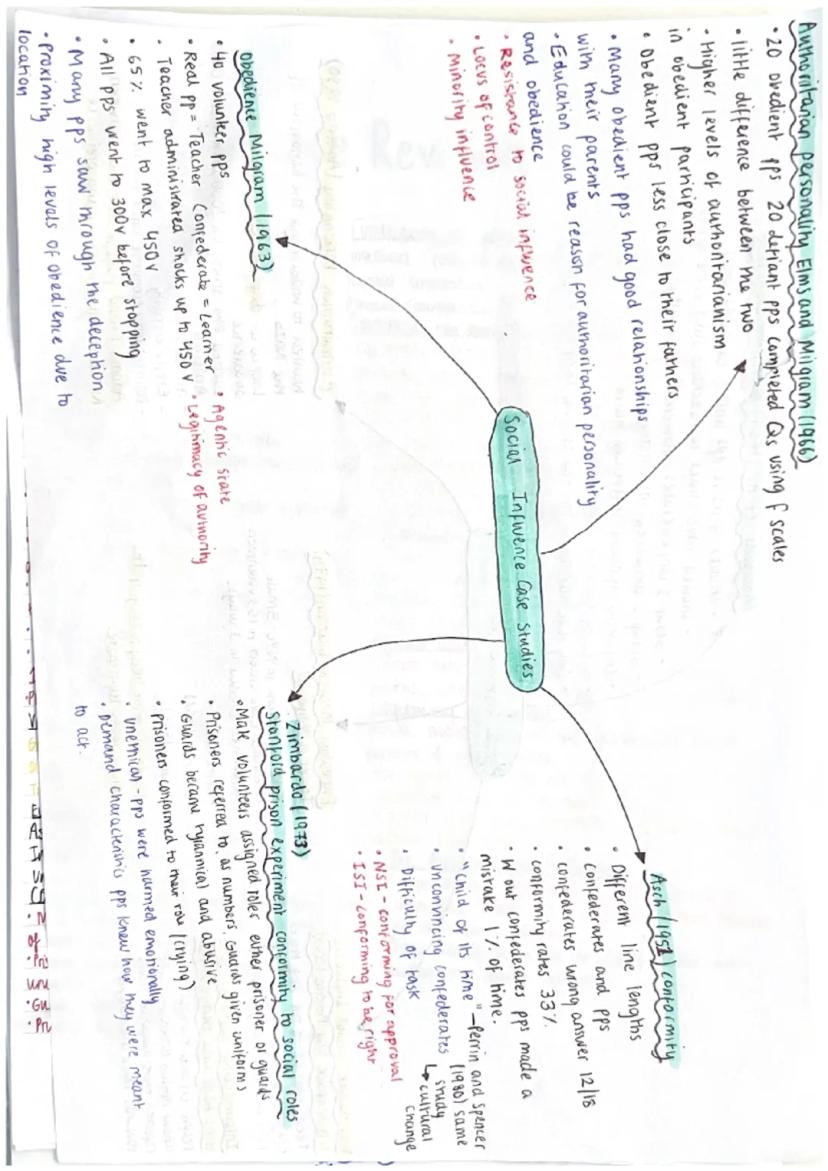 Social Influence Case Studies
Authoritarian personality Elms and Milgram (1966)
• 20 obedient pps 20 defiant pps completed Qs using f scales
• little difference between the two
• Higher levels of authoritarianism
in obedient participants
• Obedient pps less close to their fathers
• Many obedient pps had good relationships
with their parents
• Education could be reason for authoritarian personality
and obedience
• Resistance to social influence
• Locus of control
• Minority influence
Asch (1951) conformity
• Different line lengths
• Confederates and pps
• confederates wrong answer 12/18
• conformity rates 33%
• W out confederates pps made a
mistake 1% of time.
• "child of its time" - Perrin and Spencer
(1980) same
study
↳ cultural
change
• Unconvincing confederates
• Difficulty of task
• NSI - conforming for approval
• ISI - conforming to be right
Obedience Milgram (1963)
• 40 volunteer pps
• Real pp = Teacher Confederate = Learner
• Teacher administrated shocks up to 450 V
• 65% went to max 450 V
• All pps went to 300v before stopping
• Many pps saw through the deception
• proximity high levels of obedience due to
location
• Agentic state
• Legitimacy of authority
Zimbardo (1973)
Stanford prison experiment conformity to social roles
• Male volunteers assigned roles either prisoner or guards
• Prisoners referred to as numbers. Guards given uniforms
• Guards became tyrannical and abusive
• Prisoners conformed to their role (crying)
• unethical - pps were harmed emotionally
• Demand characteristics pps knew how they were meant
to act.